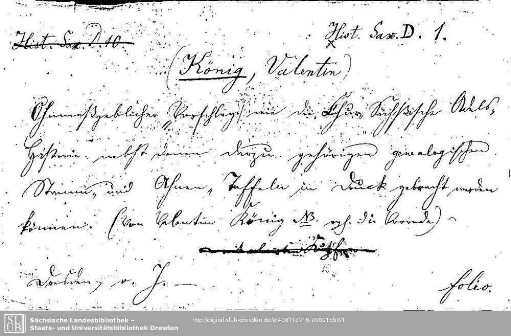 Hist. Sax. D. 10. Hist. Sax. D. 1.
(König, Valentin)
Ohnmaßgeblicher Vorschlag, wie die Chur Sächßische Adels-
Historie, nebst denen darzu gehörigen genealogischen
Stamm- und Ahnen-Taffeln in Druck gebracht werden
können. (Von Valentin König NB. vgl. die Vorrede)
Dresden, o. J. — folio.
Sächsische Landesbibliothek –
Staats- und Universitätsbibliothek Dresden